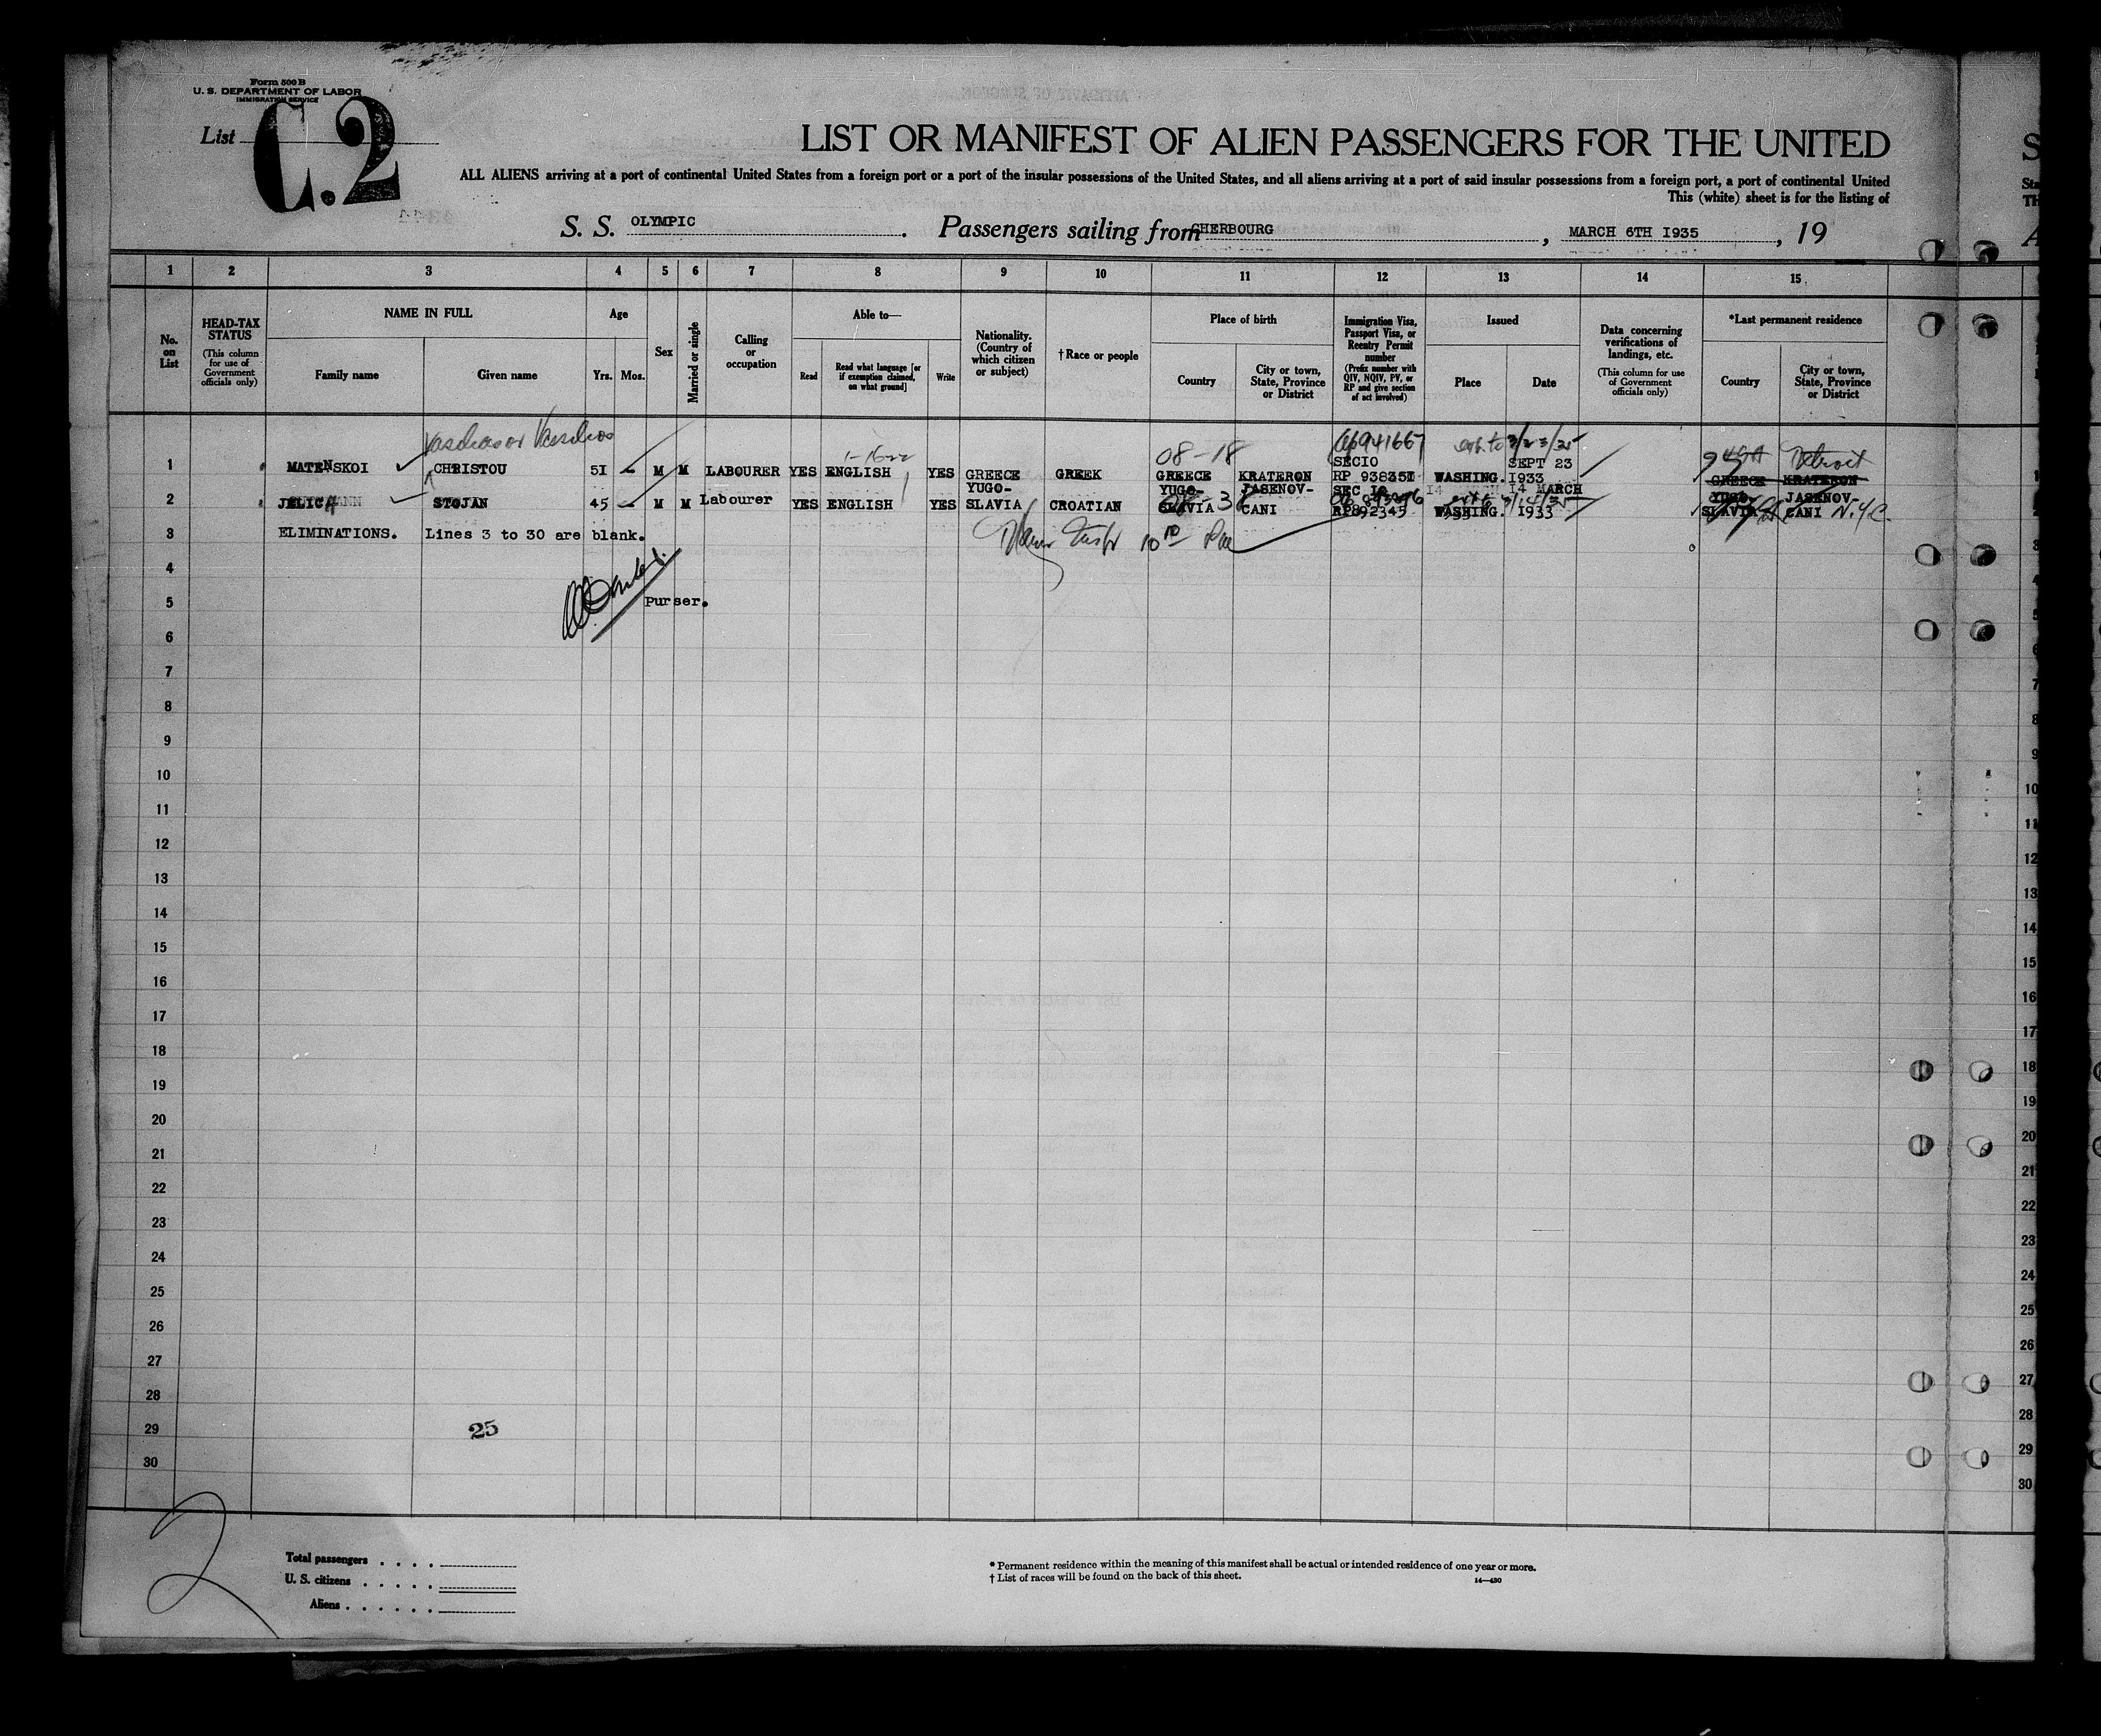 Form 500 B
U. S. DEPARTMENT OF LABOR
IMMIGRATION SERVICE
List C.2
LIST OR MANIFEST OF ALIEN PASSENGERS FOR THE UNITED
ALL ALIENS arriving at a port of continental United States from a foreign port or a port of the insular possessions of the United States, and all aliens arriving at a port of said insular possessions from a foreign port, a port of continental United
This (white) sheet is for the listing of
S. S. OLYMPIC. Passengers sailing from CHERBOURG, MARCH 6TH 1935, 19
1 2 3 4 5 6 7 8 9 10 11 12 13 14 15
No. on List
HEAD-TAX STATUS
(This column for use of Government officials only)
NAME IN FULL
Family name
Given name
Age
Yrs. Mos.
Sex
Married or single
Calling or occupation
Able to—
Read
Read what language [or if exemption claimed, on what ground]
Write
Nationality. (Country of which citizen or subject)
† Race or people
Place of birth
Country
City or town, State, Province or District
Immigration Visa, Passport Visa, or Reentry Permit number
(Prefix number with QIV, NQIV, PV, or RP and give section of act involved)
Issued
Place
Date
Data concerning verifications of landings, etc.
(This column for use of Government officials only)
*Last permanent residence
Country
City or town, State, Province or District
Vassilios 08-18 3/23/35 USA Detroit
1 MATENSKOI CHRISTOU 51 M M LABOURER YES ENGLISH YES GREECE GREEK GREECE KRATERON SECIO RP 938351 WASHING. SEPT 23 1933 GREECE KRATERON
2 JELICH STOJAN 45 M M Labourer YES ENGLISH YES YUGO-SLAVIA CROATIAN YUGO-SLAVIA JASENOV-CANI SEC WASHING. 14 MARCH 1933 YUGO-SLAVIA JASENOV-CANI N.Y.C.
3 ELIMINATIONS. Lines 3 to 30 are blank.
4
5 Purser.
6
7
8
9
10
11
12
13
14
15
16
17
18
19
20
21
22
23
24
25
26
27
28
29 25
30
2
Total passengers
U. S. citizens
Aliens
* Permanent residence within the meaning of this manifest shall be actual or intended residence of one year or more.
† List of races will be found on the back of this sheet.
14—430